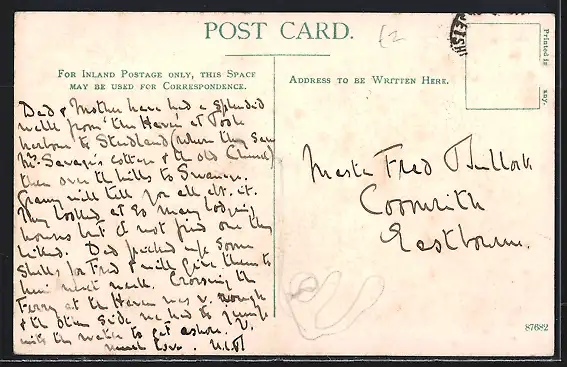 POST CARD.
£2
FOR INLAND POSTAGE ONLY, THIS SPACE
MAY BE USED FOR CORRESPONDENCE.
ADDRESS TO BE WRITTEN HERE.
Printed in
any.
Dad & Mother have had a splendid
walk from "the Haven" at Poole
harbour to Studland (where they saw
Mr Savage's cottage & the old Church)
then over the hills to Swanage.
Granny will tell you all abt. it.
They looked at so many lodging
houses but cd not find one they
liked. Dad picked up some
shells for Fred & will give them to
him next week. Crossing the
Ferry at the Haven was v. rough
& the other side we had to jump
into the water to get ashore.
much love.
Master Fred
Eastbourne.
87682